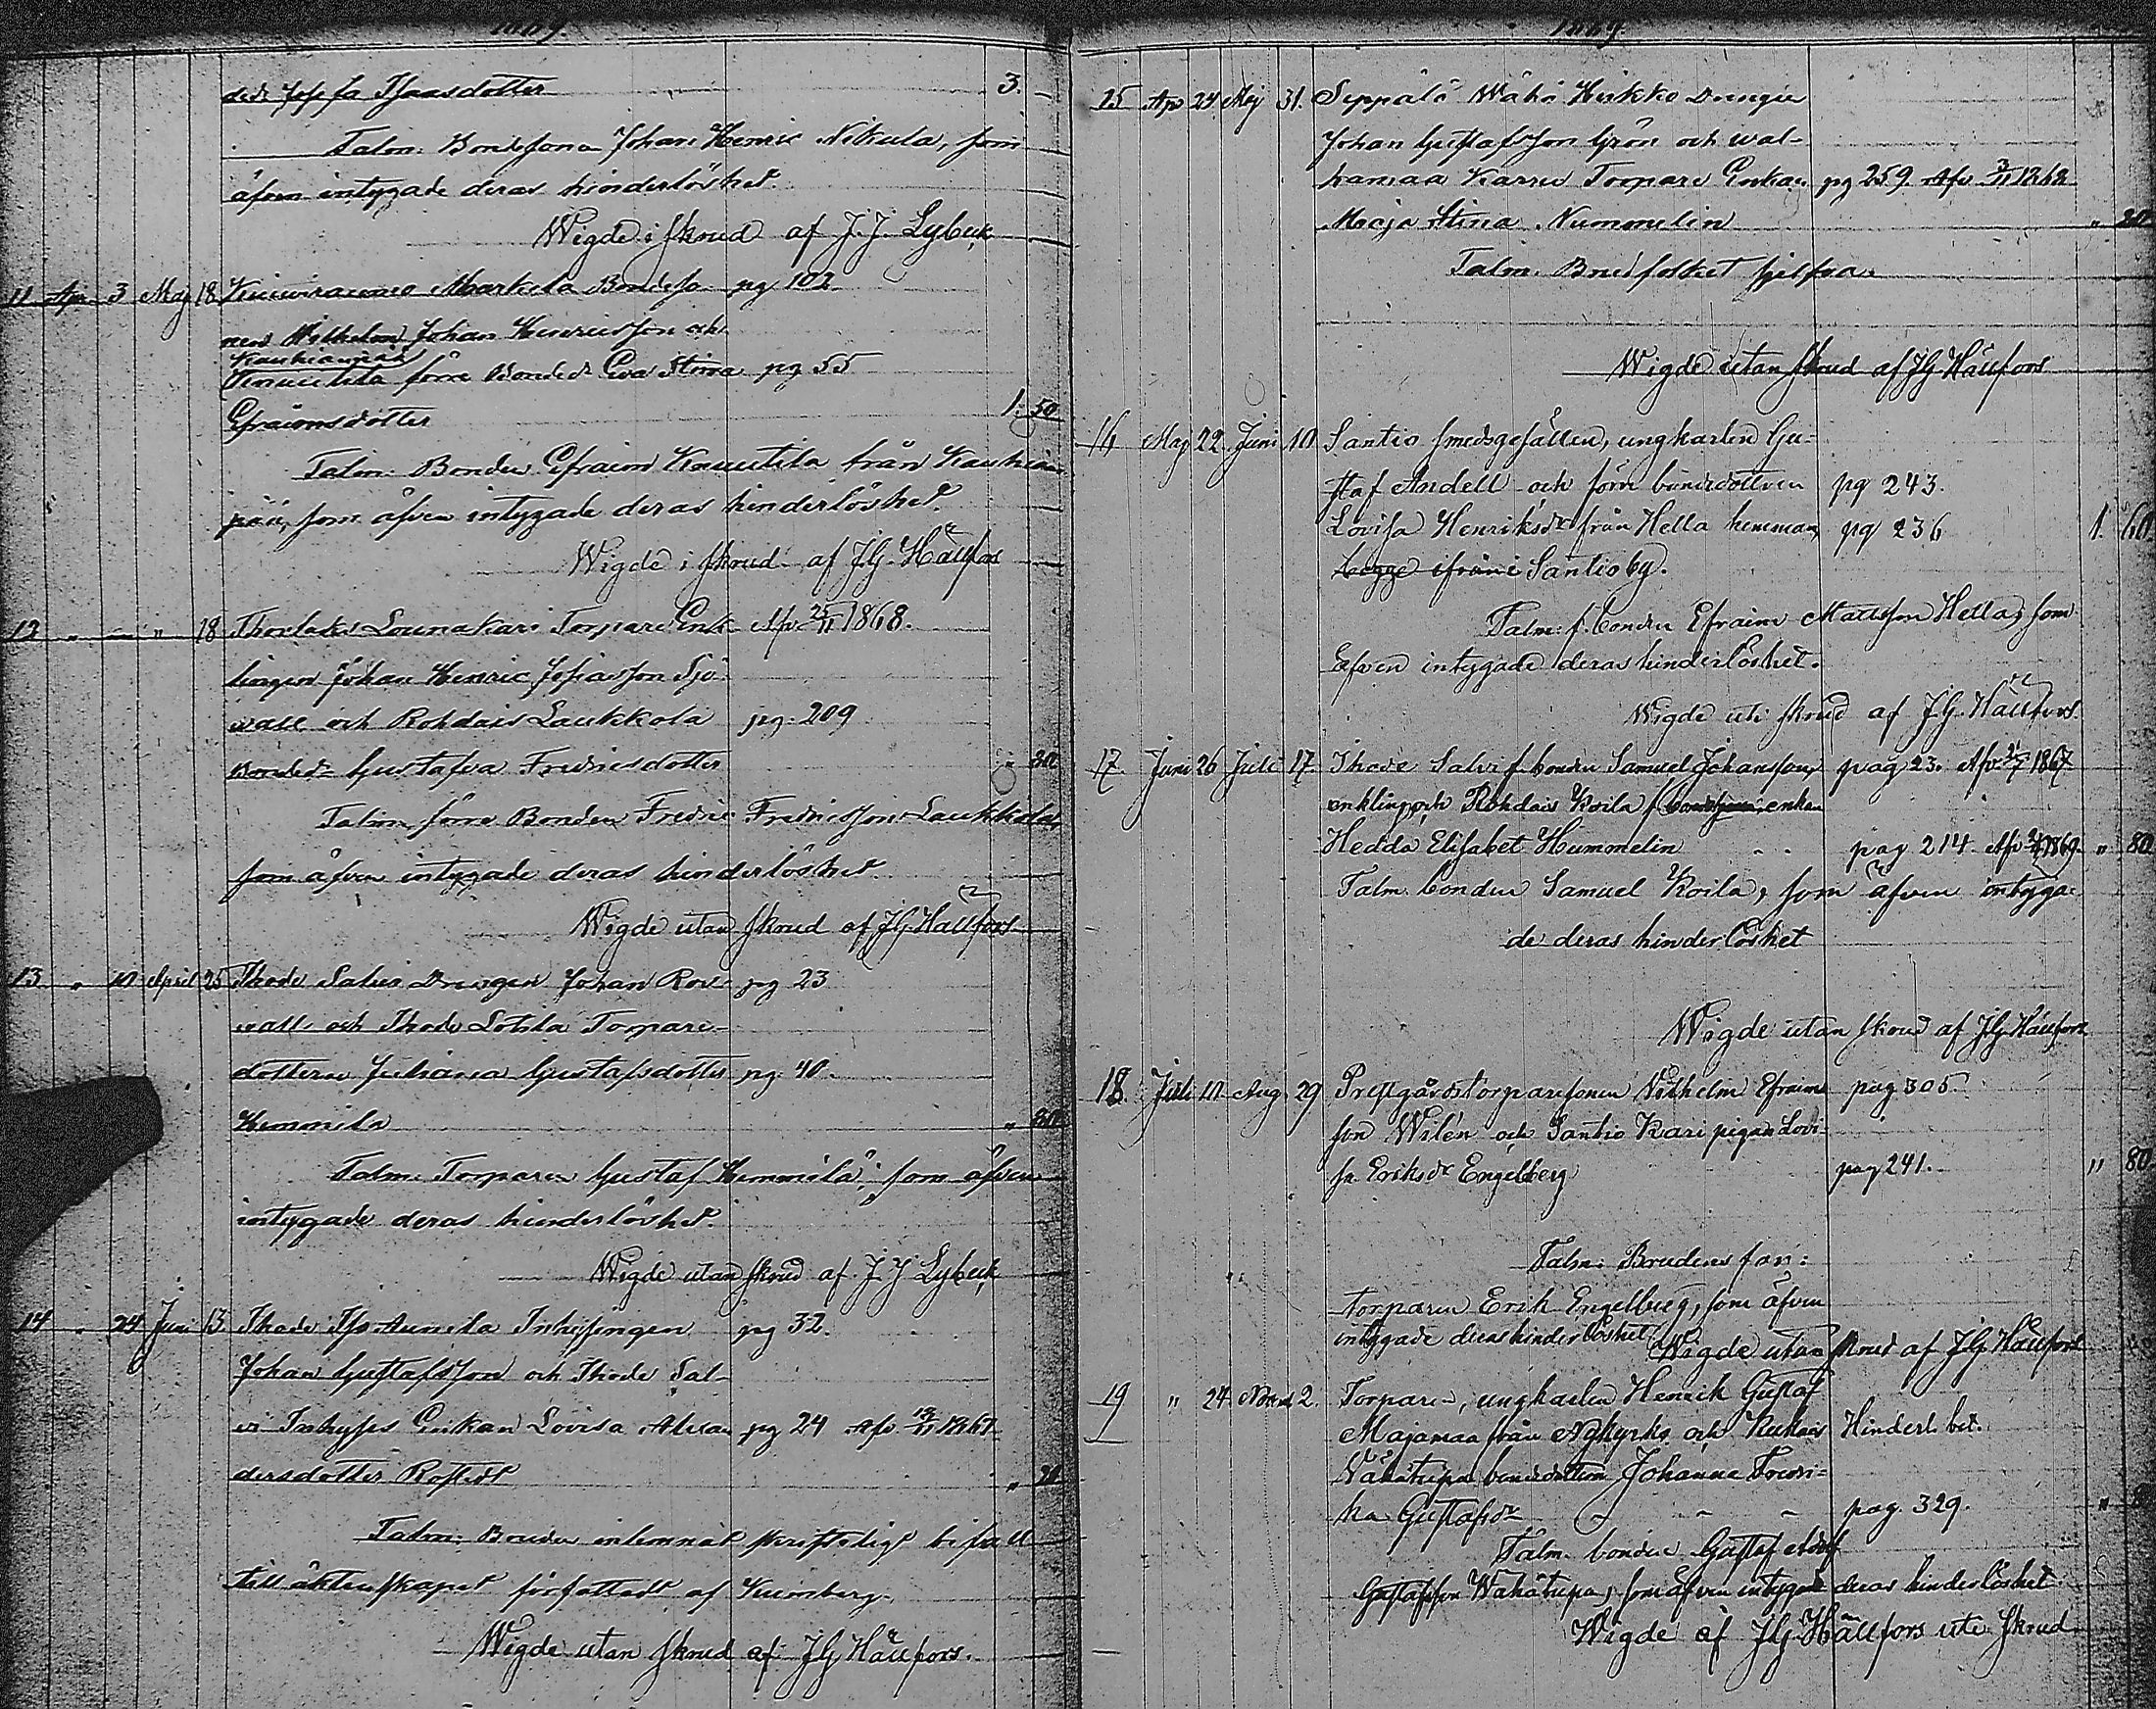 1869.
3. –
Talm: Bondesonen Johan Henric Nikula, som
äfven intygade deras hinderlöshet.
Wigde i skrud af J. J. Lybeck
11 Apr 3 Maj 18 Markula Bondeso- pg 102
nen Wilhelm Johan Henricsson och
Kauhianpää
Knuutila förre Bonded: Eva Stina pg 55
Efraimsdotter 1. 50
Talm: Bonden Efraim Knuutila från Kauhian-
pää, som äfven intygade deras hinderlöshet.
Wigde i skrud af J.G. Hällfors
12 " — " 18 Lounakari Torpare Enk- Afv. 25/11 1868.
lingen Johan Henric Josiasson Sjö-
wall och Rohdais Laukkola pg: 209
Bonded: Gustafva Fredricsdotter " 80
Talm förre Bonden Fredric Fredricsson Laukkola,
som äfven intygade deras hinderlöshet.
Wigde utan skrud af J.G. Hällfors
13 " 10 April 25 Ihode Salvis Drengen Johan Ros- pg 23
wall och Ihode Torpare-
dottern Juliana Gustafsdotter pg: 40.
Hemmila " 80
Talm: Torparen Gustaf Hemmilä, som äfven
intygade deras hinderlöshet.
Wigde utan skrud af J. J Lybeck
14 " 24 Juni 13 Ihode Iso Aunela Inhysingen pg 32.
Johan Gustafsson och Ihode Sal-
vi Inhyses Enkan Lovisa Alexan- pg 24 Afv. 1867
dersdotter Rostedt " 80
Talm: Bruden inlemnat skriftligt bifall
till äktenskapet författadt af Kumberg.
Wigde utan skrud af J G Hällfors.
1869.
15 Apr 24 Maj 31. Seppälä Wähä Heikko Drengen
Johan Gustafsson Grön och Wal-
kamaa Karru Torpare Enkan pg 259. Afv 3/11 1868
Maja Stina Nummelin " 80
Talm: Brudfolket sjelfva.
Wigde utan skrud af J G Hällfors
16 Maj 22. Juni 10 Santio smedsgesällen, ungkarlen Gu-
staf Andell och förre bondedottren pg 243.
Lovisa Henriksdr från Hella hemman, pg 236 1. 60.
begge ifrån Santio by.
Talm: f. bonden Efraim Mattsson Hella, som
äfven intygade deras hinderlöshet.
Wigde uti skrud af J.G. Hällfors.
17. Juni 26 Juli 17. Ihode Salvi f. bonden Samuel Johansson, pag 23. Afv 1867
enkling, och Rohdais Koila f. enkan
Hedda Elisabet Hummelin pag 214 Afv 1869 " 80
Talm. bonden Samuel Koila, som äfven intyga-
de deras hinderlöshet
Wigde utan skrud af J G Hällfors
18. Juli 10. Aug. 29 Prestgårdstorparesonen Wilhelm Efraims- pag 305.
son Wilén och Santio Kari pigan Lovi-
sa Eriksdr Engelberg pag 241. " 80
Talm: Brudens far:
torparen Erik Engelberg, som äfven
intygade deras hinderlöshet. Wigde utan skrud af J G Hällfors
19 " 24 Novem 2. Torparen, ungkarlen Henrik Gustaf
Majamaa från Nykyrko och Ruhais Hinderl. bet.
Wähätupa bondedottren Johanna Fredri-
ka Gustafsdr pag. 329. "
Talm. bonden Gustaf Adolf
Gustafsson Wähätupa, som äfven intygade deras hinderlöshet
Wigde af J G Hällfors uti skrud